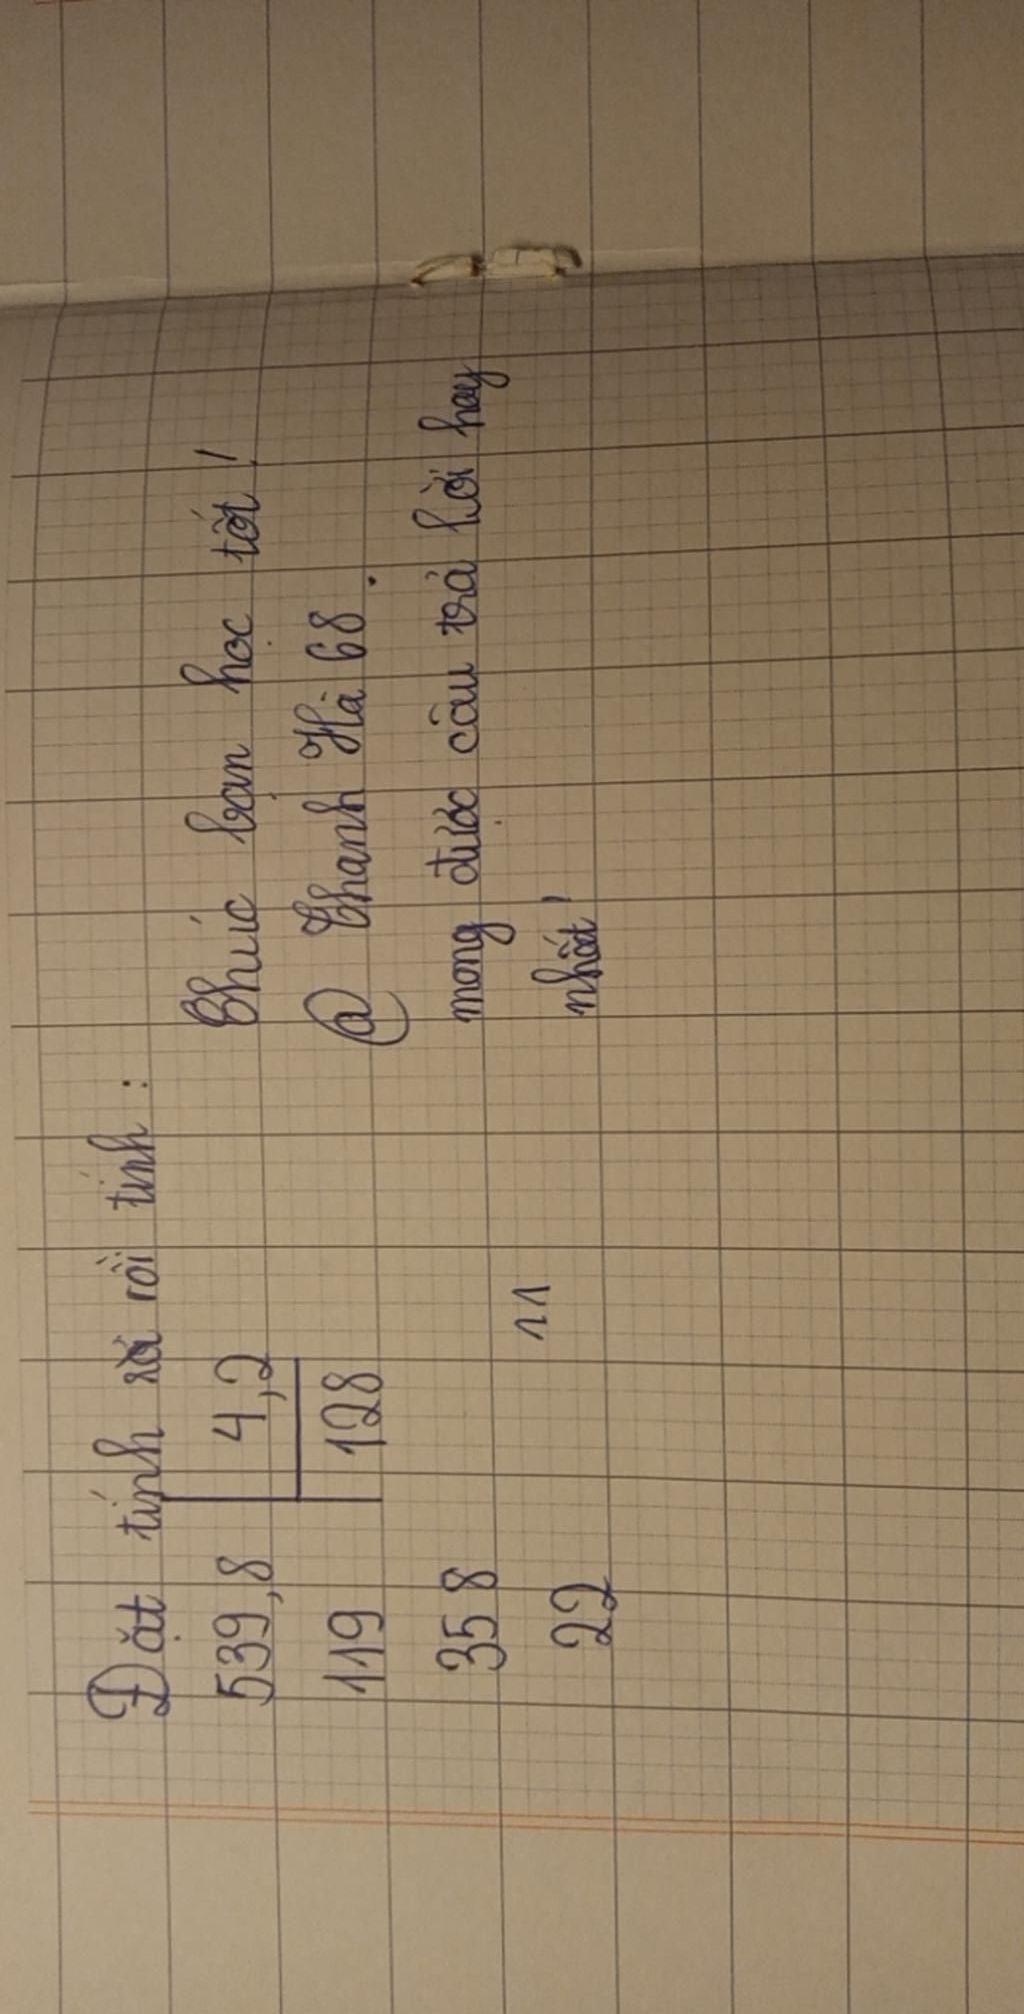 Đặt tính rồi tính :
539,8 4,2
119 128
358
22
11
Chúc bạn học tốt !
@ Thanh Hà 68 .
mong được câu trả lời hay
nhất !